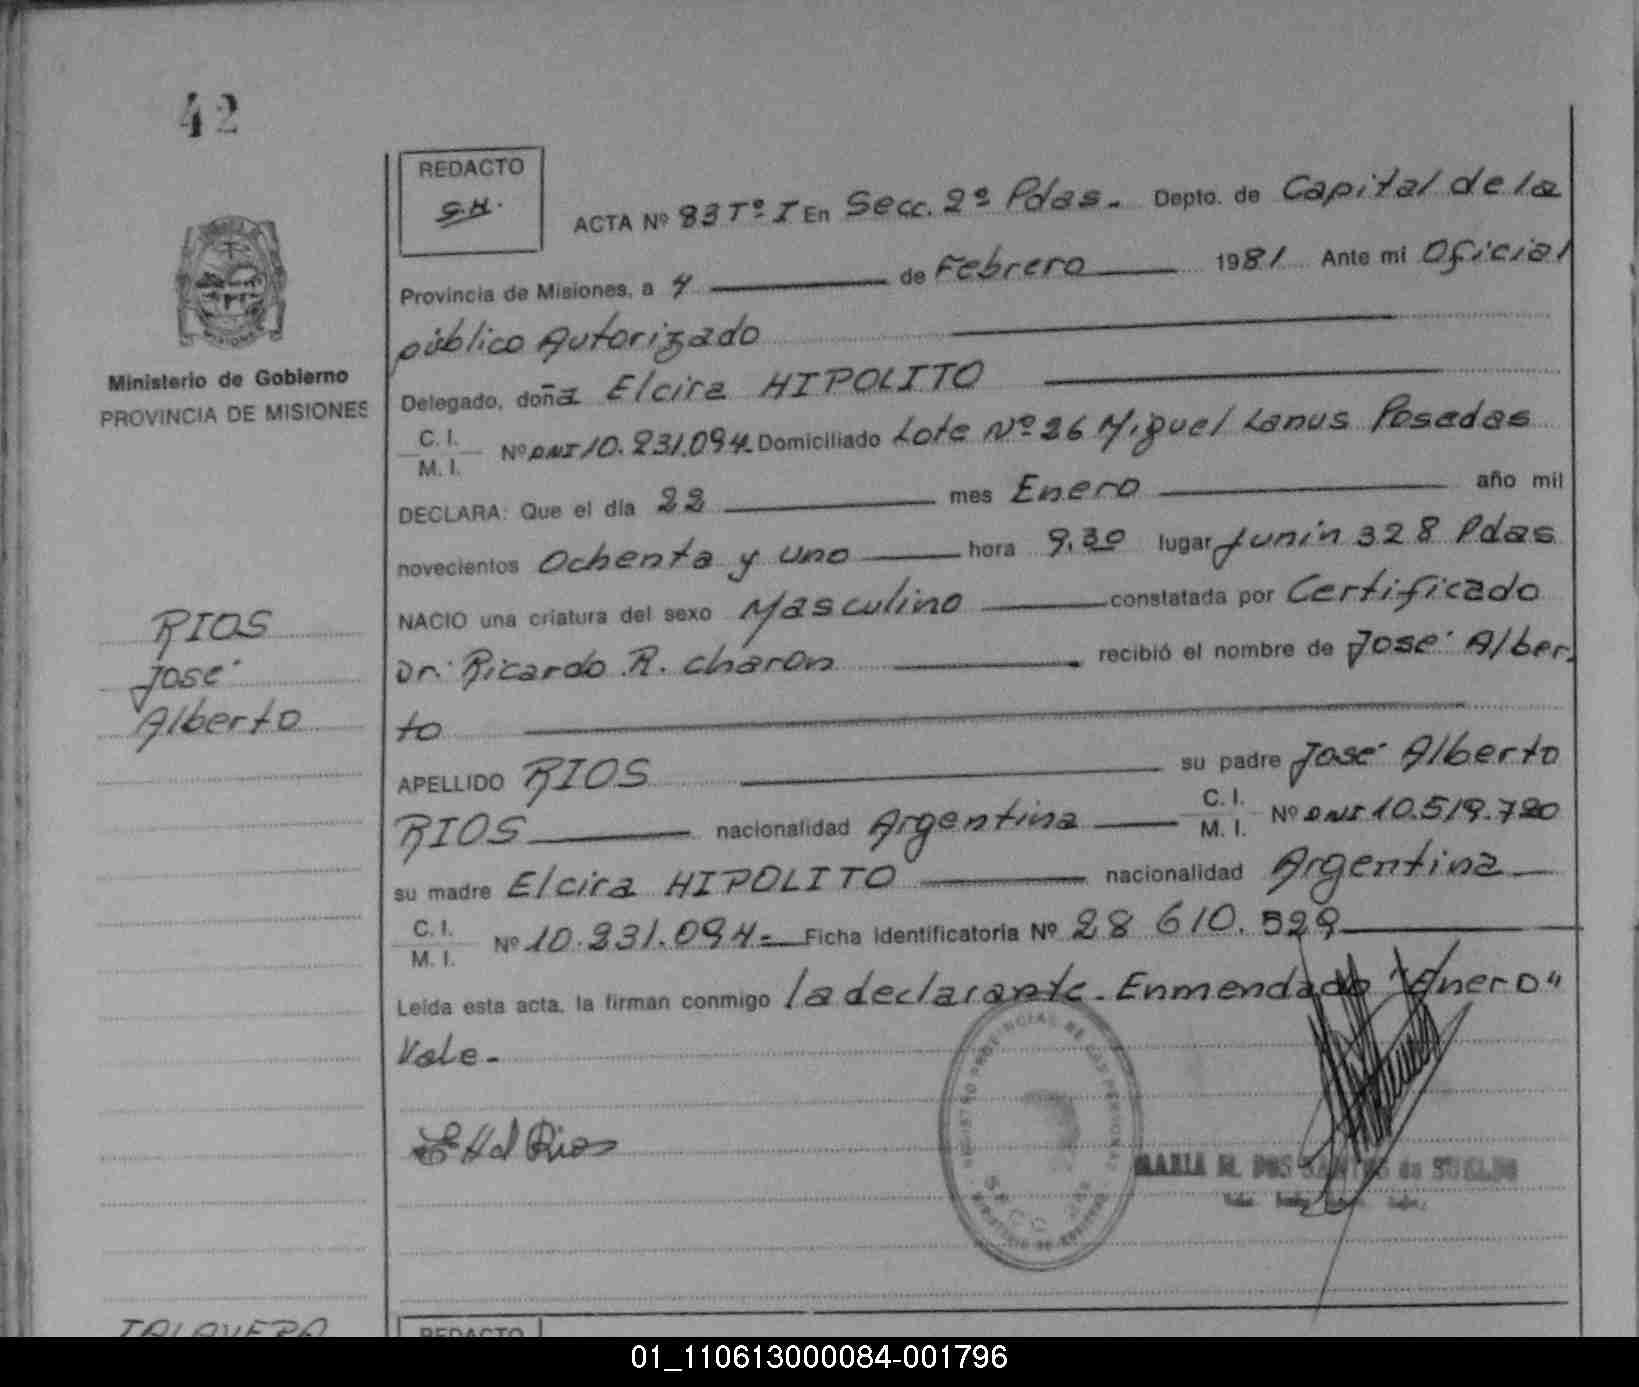 42
REDACTO
G.H.
ACTA Nº 83 Tº I En Secc. 2º Pdas. Depto. de Capital de la
Provincia de Misiones, a 4 de Febrero 1981 Ante mi Oficial
público Autorizado
Ministerio de Gobierno
PROVINCIA DE MISIONES
Delegado, doña Elcira HIPOLITO
C. I.
M. I.
Nº DNI 10.231.094. Domiciliado Lote Nº 26 Miguel Lanus Posadas
DECLARA: Que el día 22 mes Enero año mil
novecientos Ochenta y uno hora 9,30 lugar Junin 328 Pdas
NACIO una criatura del sexo Masculino constatada por Certificado
Dr. Ricardo R. Charon recibió el nombre de José Alber
to
RIOS
José
Alberto
APELLIDO RIOS su padre José Alberto
RIOS nacionalidad Argentina C. I. M. I. Nº DNI 10.519.720
su madre Elcira HIPOLITO nacionalidad Argentina
C. I.
M. I.
Nº 10.231.094.- Ficha identificatoria Nº 28 610.529
Leída esta acta, la firman conmigo la declarante. Enmendado "Enero"
Vale.-
E H d Rios
REGISTRO PROVINCIAL DE LAS PERSONAS
SECC 2da
MINISTERIO DE GOBIERNO
MARIA M. DOS SANTOS de SUELDO
TALAVERA
REDACTO
01_110613000084-001796